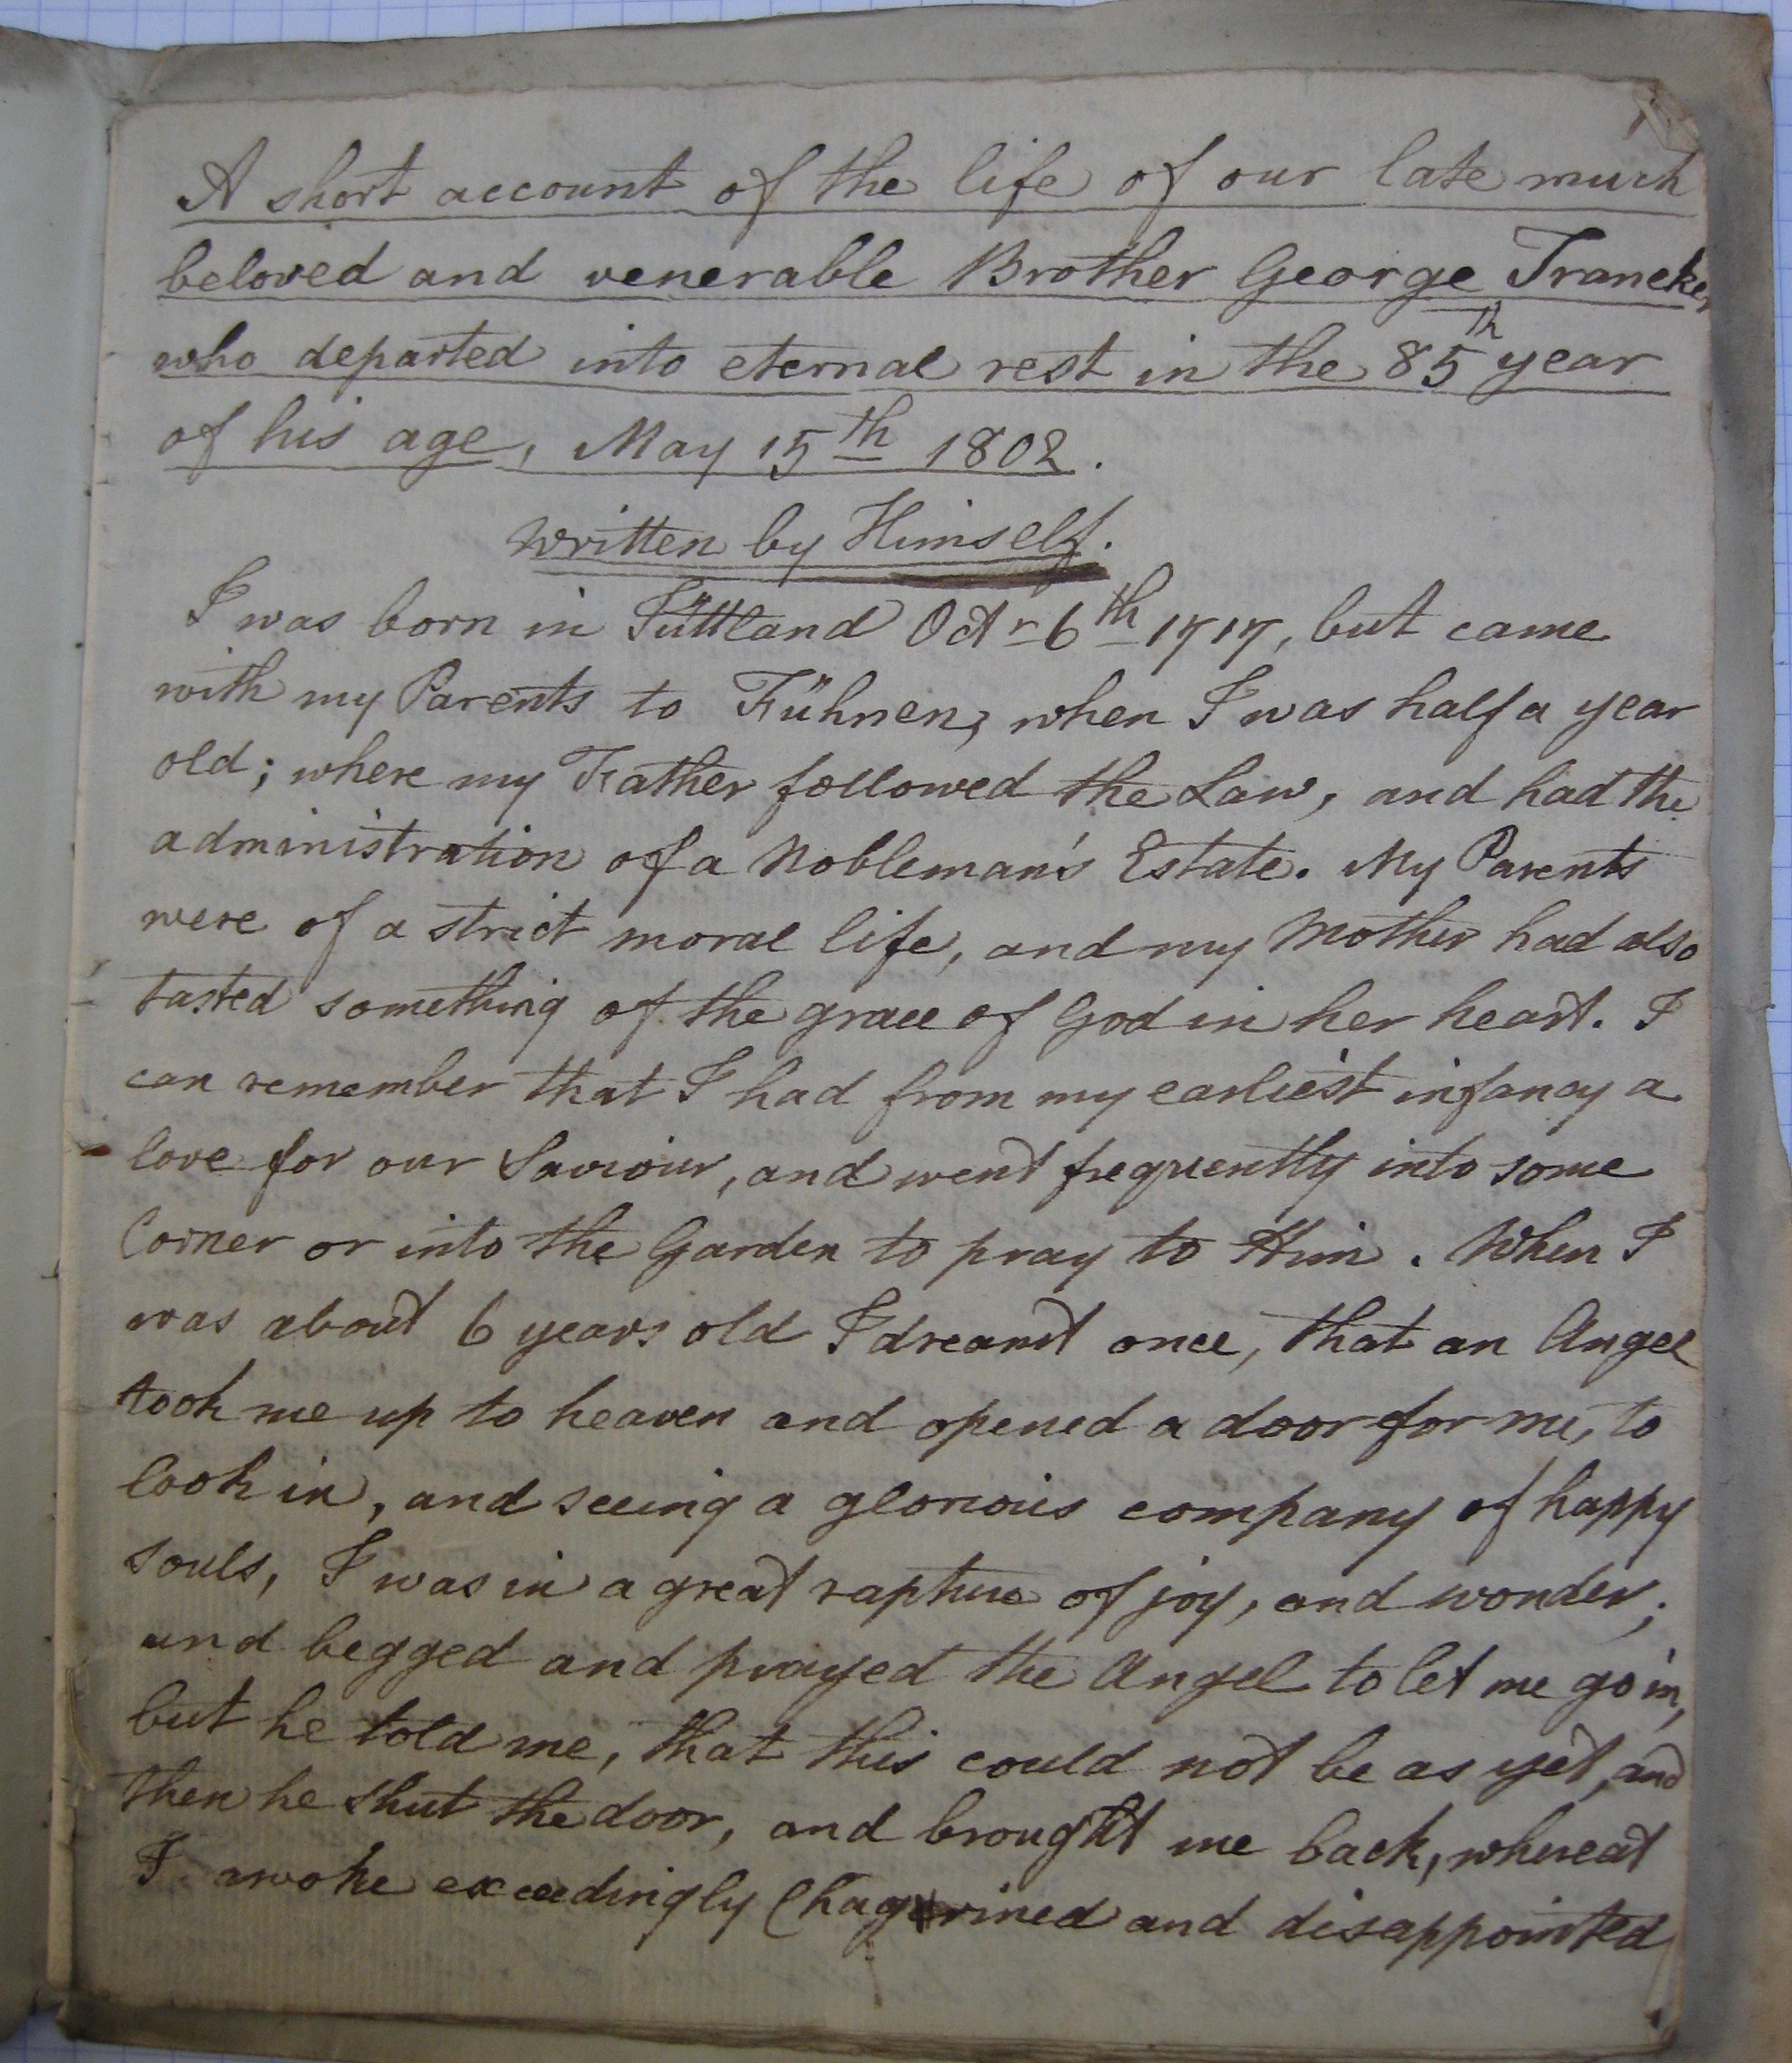 A short account of the life of our late much
beloved and venerable Brother George Traneker,
who departed into eternal rest in the 85th year
of his age, May 15th 1802.
written by Himself.
I was born in Jüttland Octr 6th 1717, but came
with my Parents to Fühnen, when I was half a year
old; where my Father followed the Law, and had the
administration of a Nobleman's Estate. My Parents
were of a strict moral life, and my Mother had also
tasted something of the grace of God in her heart. I
can remember that I had from my earliest infancy a
love for our Saviour, and went frequently into some
Corner or into the Garden to pray to Him. When I
was about 6 years old I dreamt once, that an Angel
took me up to heaven and opened a door for me, to
look in, and seeing a glorious company of happy
souls, I was in a great rapture of joy, and wonder;
and begged and prayed the Angel to let me go in,
but he told me, that this could not be as yet, and
then he shut the door, and brought me back, whereat
I awoke exceedingly Chagrined and disappointed